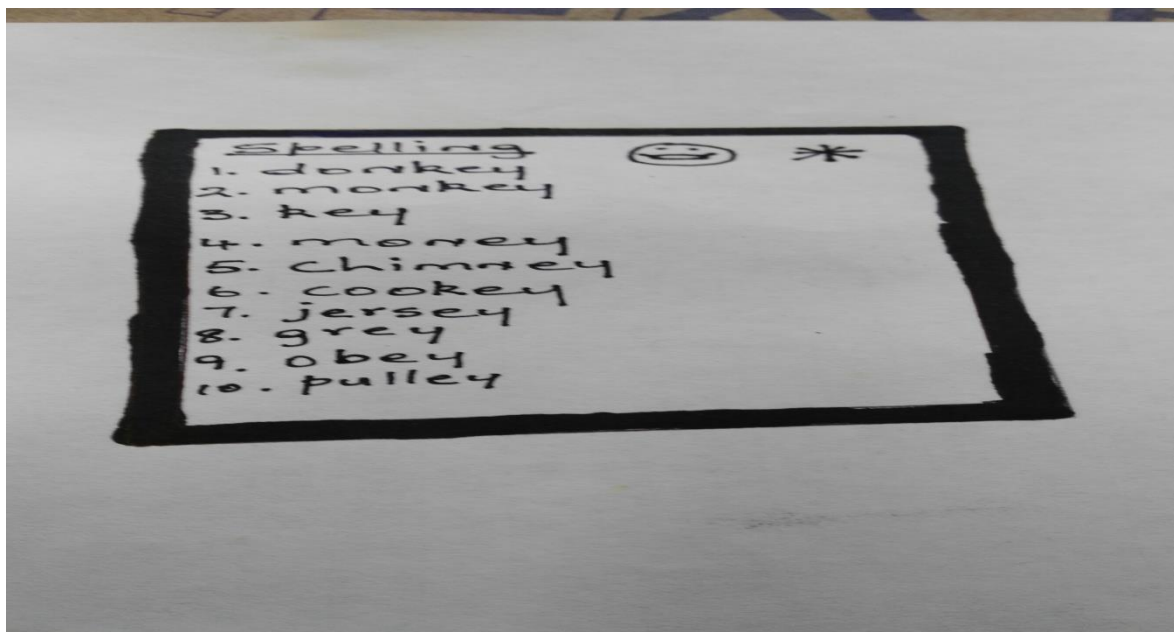 Spelling
1. donkey
2. monkey
3. key
4. money
5. chimney
6. cookey
7. jersey
8. grey
9. obey
10. pulley